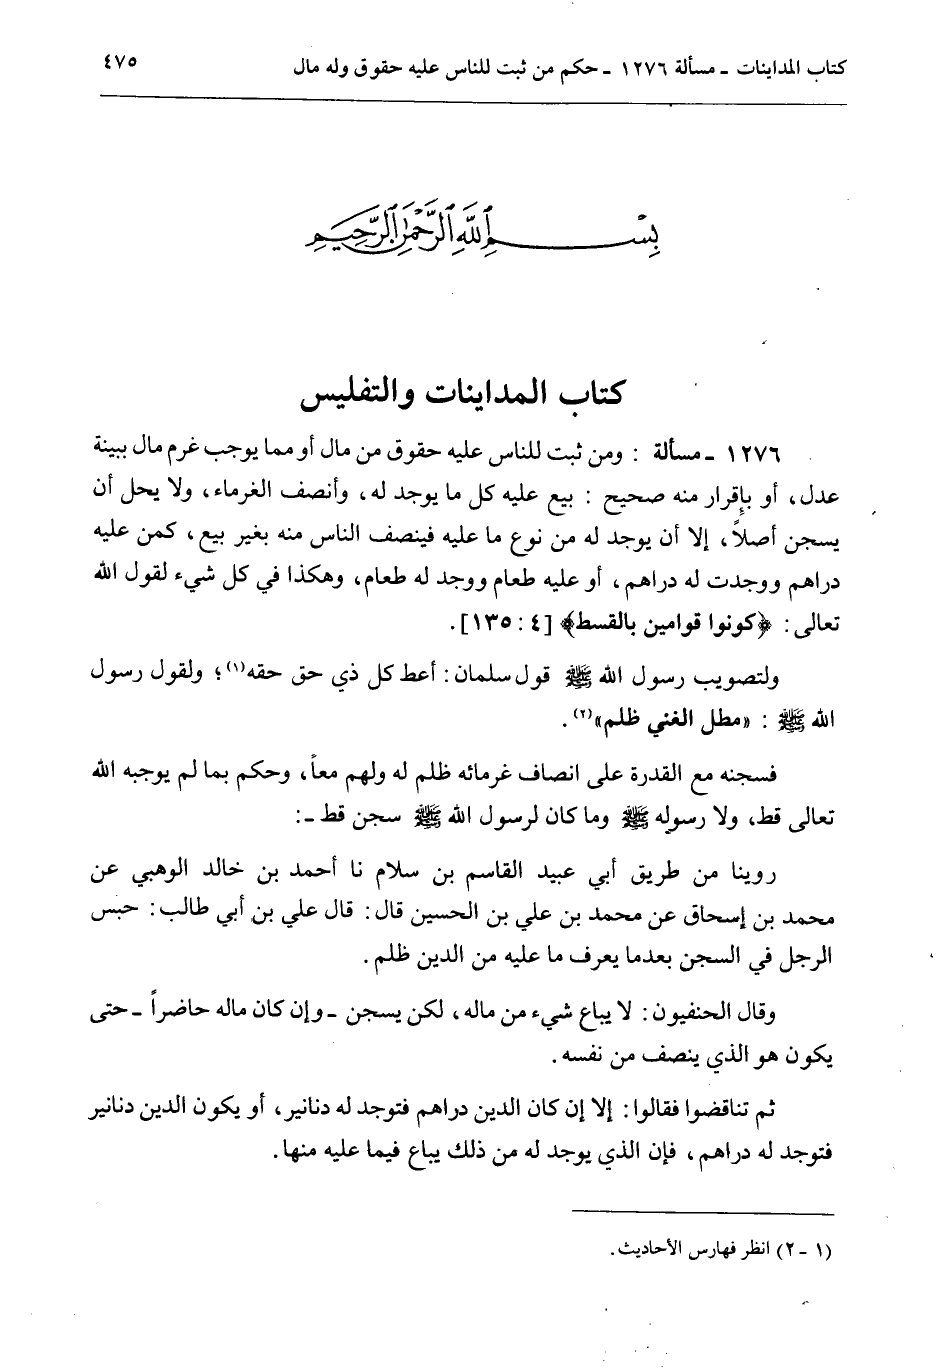 كتاب المداينات ـ مسألة ١٢٧٦ ـ حكم من ثبت للناس عليه حقوق وله مال ٤٧٥
بسم الله الرحمن الرحيم
كتاب المداينات والتفليس
١٢٧٦ ـ مسألة : ومن ثبت للناس عليه حقوق من مال أو مما يوجب غرم مال ببينة
عدل، أو بإقرار منه صحيح : بيع عليه كل ما يوجد له، وأنصف الغرماء، ولا يحل أن
يسجن أصلاً، إلا أن يوجد له من نوع ما عليه فينصف الناس منه بغير بيع، كمن عليه
دراهم ووجدت له دراهم، أو عليه طعام ووجد له طعام، وهكذا في كل شيء لقول الله
تعالى: ﴿كونوا قوامين بالقسط﴾ [٤ : ١٣٥].
ولتصويب رسول الله ﷺ قول سلمان: أعط كل ذي حق حقه(١)؛ ولقول رسول
الله ﷺ : «مطل الغني ظلم»(٢).
فسجنه مع القدرة على انصاف غرمائه ظلم له ولهم معاً، وحكم بما لم يوجبه الله
تعالى قط، ولا رسوله ﷺ وما كان لرسول الله ﷺ سجن قط ـ:
روينا من طريق أبي عبيد القاسم بن سلام نا أحمد بن خالد الوهبي عن
محمد بن إسحاق عن محمد بن علي بن الحسين قال: قال علي بن أبي طالب: حبس
الرجل في السجن بعدما يعرف ما عليه من الدين ظلم.
وقال الحنفيون: لا يباع شيء من ماله، لكن يسجن ـ وإن كان ماله حاضراً ـ حتى
يكون هو الذي ينصف من نفسه.
ثم تناقضوا فقالوا: إلا إن كان الدين دراهم فتوجد له دنانير، أو يكون الدين دنانير
فتوجد له دراهم، فإن الذي يوجد له من ذلك يباع فيما عليه منها.
(١ ـ ٢) انظر فهارس الأحاديث.